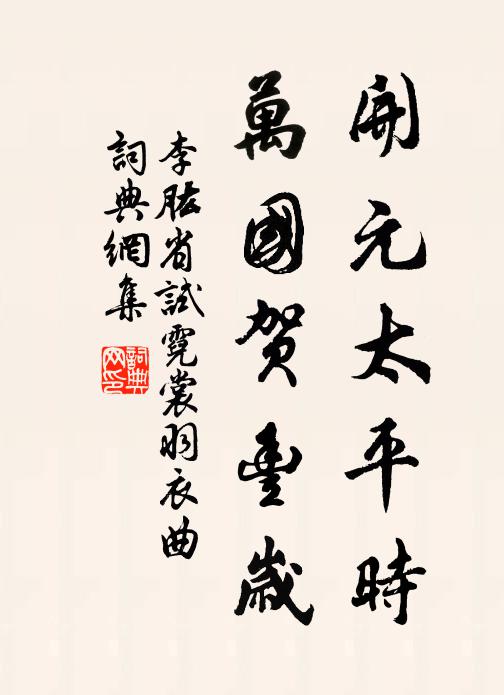 開元太平時
萬國賀豊歲
李肱省試霓裳羽衣曲
詞典網集
詞典
网印